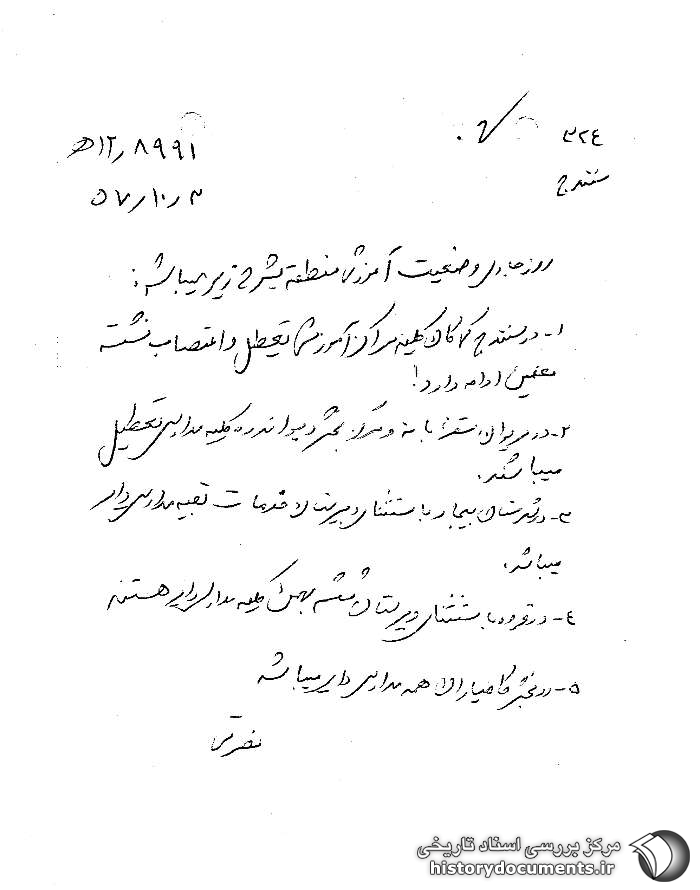 ۳۲۴
سنندج
۱۲٫۸۹۹۱ ه
۵۷٫۱۰٫۳
روز جاری وضعیت آموزش منطقه بشرح زیر میباشد:
۱- در سنندج کماکان کلیه مراکز آموزشی تعطیل و اعتصاب نشسته
معلمین ادامه دارد!
۲- در مریوان، سقز، بانه و مرکز بخش دیواندره کلیه مدارس تعطیل
میباشند.
۳- در شهرستان بیجار باستثنای دبیرستان خدمات بقیه مدارس دایر
میباشد.
۴- در قروه باستثنای دبیرستان ششم بهمن کلیه مدارس دایر هستند
۵- در بخش کامیاران همه مدارس دایر میباشد
نصرتی
مرکز بررسی اسناد تاریخی
historydocuments.ir